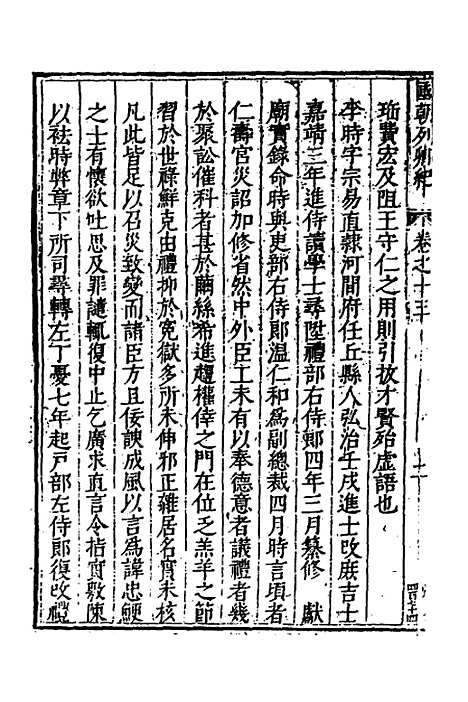 國朝列卿紀　卷之十三
瑜費宏及阻王守仁之用則引拔才賢殆虛語也
李時字宗易直隸河間府任丘縣人弘治壬戌進士改庶吉士
嘉靖三年進侍讀學士尋陞禮部右侍郎四年三月纂修　獻
廟實錄命時與吏部右侍郎溫仁和爲副總裁四月時言頃者
仁壽宮災詔加修省然中外臣工未有以奉德意者議禮者幾
於聚訟催科者甚於繭絲希進趨權倖之門在位乏羔羊之節
習於世祿鮮克由禮抑於冤獄多所未伸邪正雜居名實未核
凡此皆足以召災致變而諸臣方且佞諛成風以言爲諱忠鯁
之士有懷欲吐思及罪譴輒復中止乞廣求直言令指實敷陳
以袪時弊章下所司尋轉左丁憂七年起戸部左侍郎復改禮